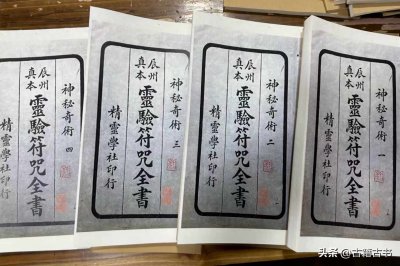 神秘奇術 一
辰州
真本
靈驗符咒全書
精靈學社印行
神秘奇術 二
辰州
真本
靈驗符咒全書
精靈學社印行
神秘奇術 三
辰州
真本
靈驗符咒全書
精靈學社印行
神秘奇術 四
辰州
真本
靈驗符咒全書
精靈學社印行
头条 @古籍古书